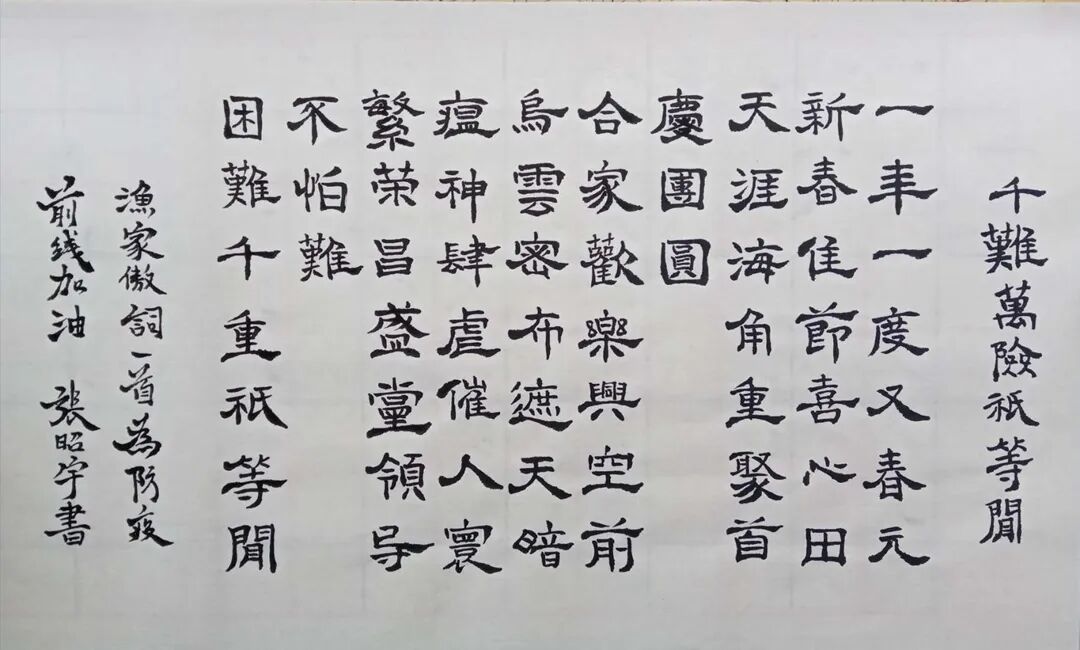 千難萬險祇等閒
一年一度又春元
新春佳節喜心田
天涯海角重聚首
慶團圓
合家歡樂興空前
烏雲密布遮天暗
瘟神肆虐催人寰
繁荣昌盛黨領导
不怕難
困難千重祇等閒
漁家傲詞一首為防疫
前线加油 張昭宇書